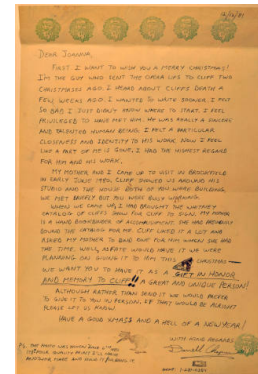 DEAR JOANNA,
FIRST I WANT TO WISH YOU A MERRY CHRISTMAS!
I'M THE GUY WHO SENT THE LIFE TO CLIFF TWO
CHRISTMASES AGO. I HEARD ABOUT CLIFFS DEATH A
FEW WEEKS AGO. I WANTED TO WRITE SOONER. I FELT
SO BAD I JUST DIDN'T KNOW WHERE TO START. I FEEL
PRIVILEGED TO HAVE MET HIM. HE WAS REALLY A SINCERE
AND TALENTED HUMAN BEING. I FELT A PARTICULAR
CLOSENESS AND IDENTITY TO HIS WORK. NOW I FEEL
LIKE A PART OF ME IS GONE. I HAD THE HIGHEST REGARD
FOR HIM AND HIS WORK.
MY MOTHER AND I CAME UP TO VISIT IN
IN EARLY JUNE CLIFF SHOWED US AROUND HIS
STUDIO AND THE HOUSE BOTH OF YOU WERE BUILDING.
WE MET BRIEFLY BUT YOU WERE BUSY WORKING.
WHEN WE CAME UP I HAD BOUGHT THE WHITNEY
CATALOG OF CLIFFS SHOW FOR CLIFF TO SIGN. MY MOTHER
IS A HAND BOOKBINDER OF SHE HAD
BOUND THE CATALOG FOR ME. CLIFF LIKED IT A LOT AND
ASKED MY MOTHER TO BIND ONE FOR HIM WHEN SHE HAD
THE TIME. WELL, WOULD HAVE IT WE WERE
PLANNING ON GIVING IT TO HIM THIS CHRISTMAS—
WE WANT YOU TO HAVE IT AS A GIFT IN HONOR
AND MEMORY TO CLIFF!! A GREAT AND UNIQUE PERSON!
ALTHOUGH RATHER THAN SEND IT WE WOULD PREFER
TO GIVE IT TO YOU IN PERSON, IF THEY WOULD BE ALRIGHT
PLEASE LET US KNOW.
HAVE A GOOD XMAS AND A HELL OF A NEW YEAR!
WITH FOND REGARDS,